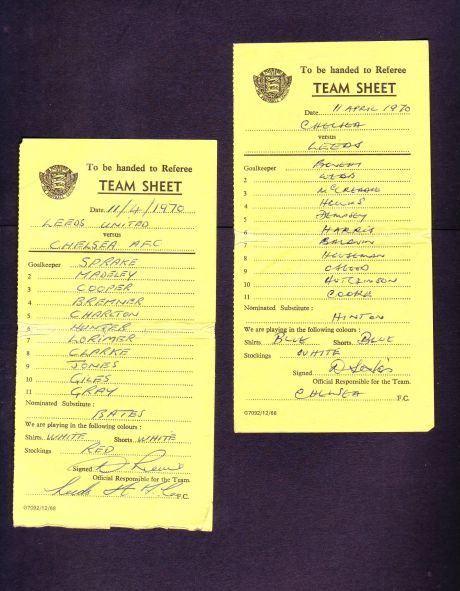 To be handed to Referee
TEAM SHEET
Date 11/4/1970
LEEDS UNITED
versus
CHELSEA AFC
Goalkeeper SPRAKE
2 MADELEY
3 COOPER
4 BREMNER
5 CHARLTON
6 HUNTER
7 LORIMER
8 CLARKE
9 JONES
10 GILES
11 GRAY
Nominated Substitute :
BATES
We are playing in the following colours :
Shirts WHITE Shorts WHITE
Stockings RED
Signed D Revie
Official Responsible for the Team.
Leeds F.C.
G7092/12/68
To be handed to Referee
TEAM SHEET
Date 11 APRIL 1970
CHELSEA
versus
LEEDS
Goalkeeper BONETTI
2 WEBB
3 McCREADIE
4 HOLLINS
5 DEMPSEY
6 HARRIS
7 BALDWIN
8 HOUSEMAN
9 OSGOOD
10 HUTCHINSON
11 COOKE
Nominated Substitute :
HINTON
We are playing in the following colours :
Shirts BLUE Shorts BLUE
Stockings WHITE
Signed D Sexton
Official Responsible for the Team.
CHELSEA F.C.
G7092/12/68